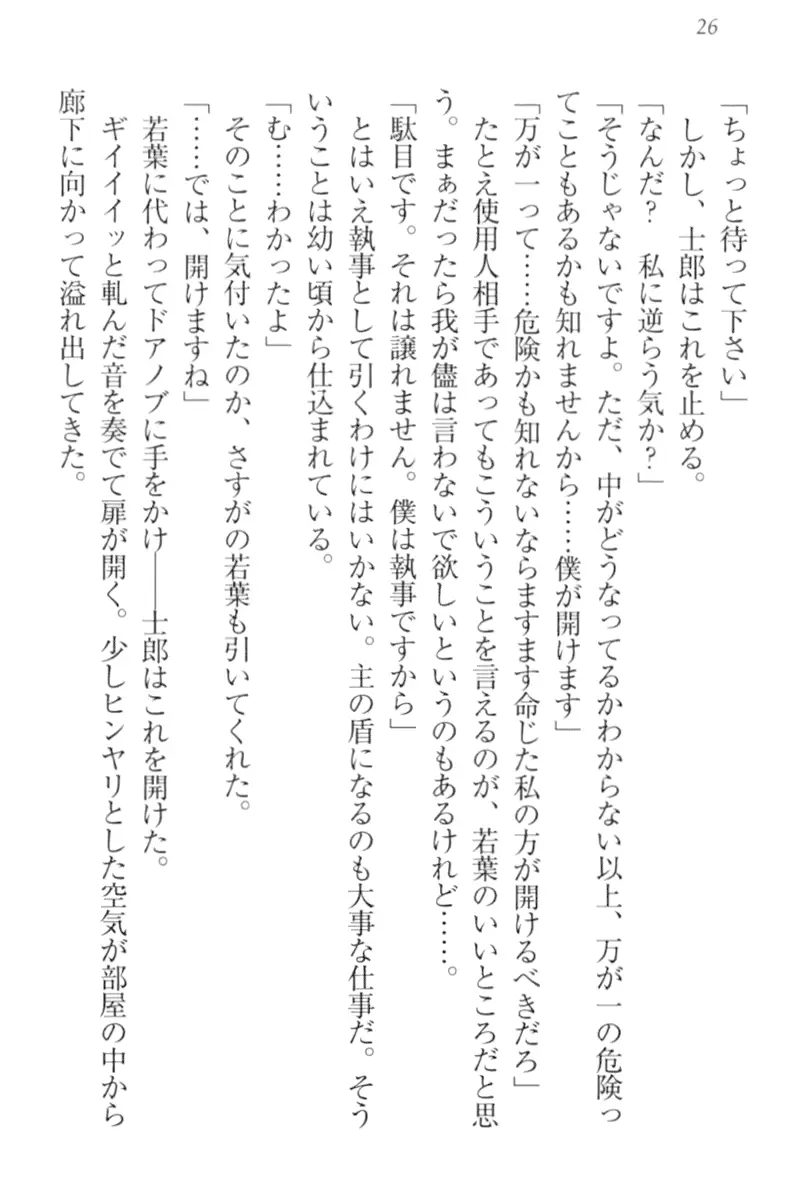 26
「ちょっと待って下さい」
　しかし、士郎はこれを止める。
「なんだ？　私に逆らう気か？」
「そうじゃないですよ。ただ、中がどうなってるかわからない以上、万が一の危険っ
てこともあるかも知れませんから……僕が開けます」
「万が一って……危険かも知れないならますます命じた私の方が開けるべきだろ」
　たとえ使用人相手であってもこういうことを言えるのが、若葉のいいところだと思
う。まぁだったら我が儘は言わないで欲しいというのもあるけれど……。
「駄目です。それは譲れません。僕は執事ですから」
　とはいえ執事として引くわけにはいかない。主の盾になるのも大事な仕事だ。そう
いうことは幼い頃から仕込まれている。
「む……わかったよ」
　そのことに気付いたのか、さすがの若葉も引いてくれた。
「……では、開けますね」
　若葉に代わってドアノブに手をかけ――士郎はこれを開けた。
　ギイイイッと軋んだ音を奏でて扉が開く。少しヒンヤリとした空気が部屋の中から
廊下に向かって溢れ出してきた。